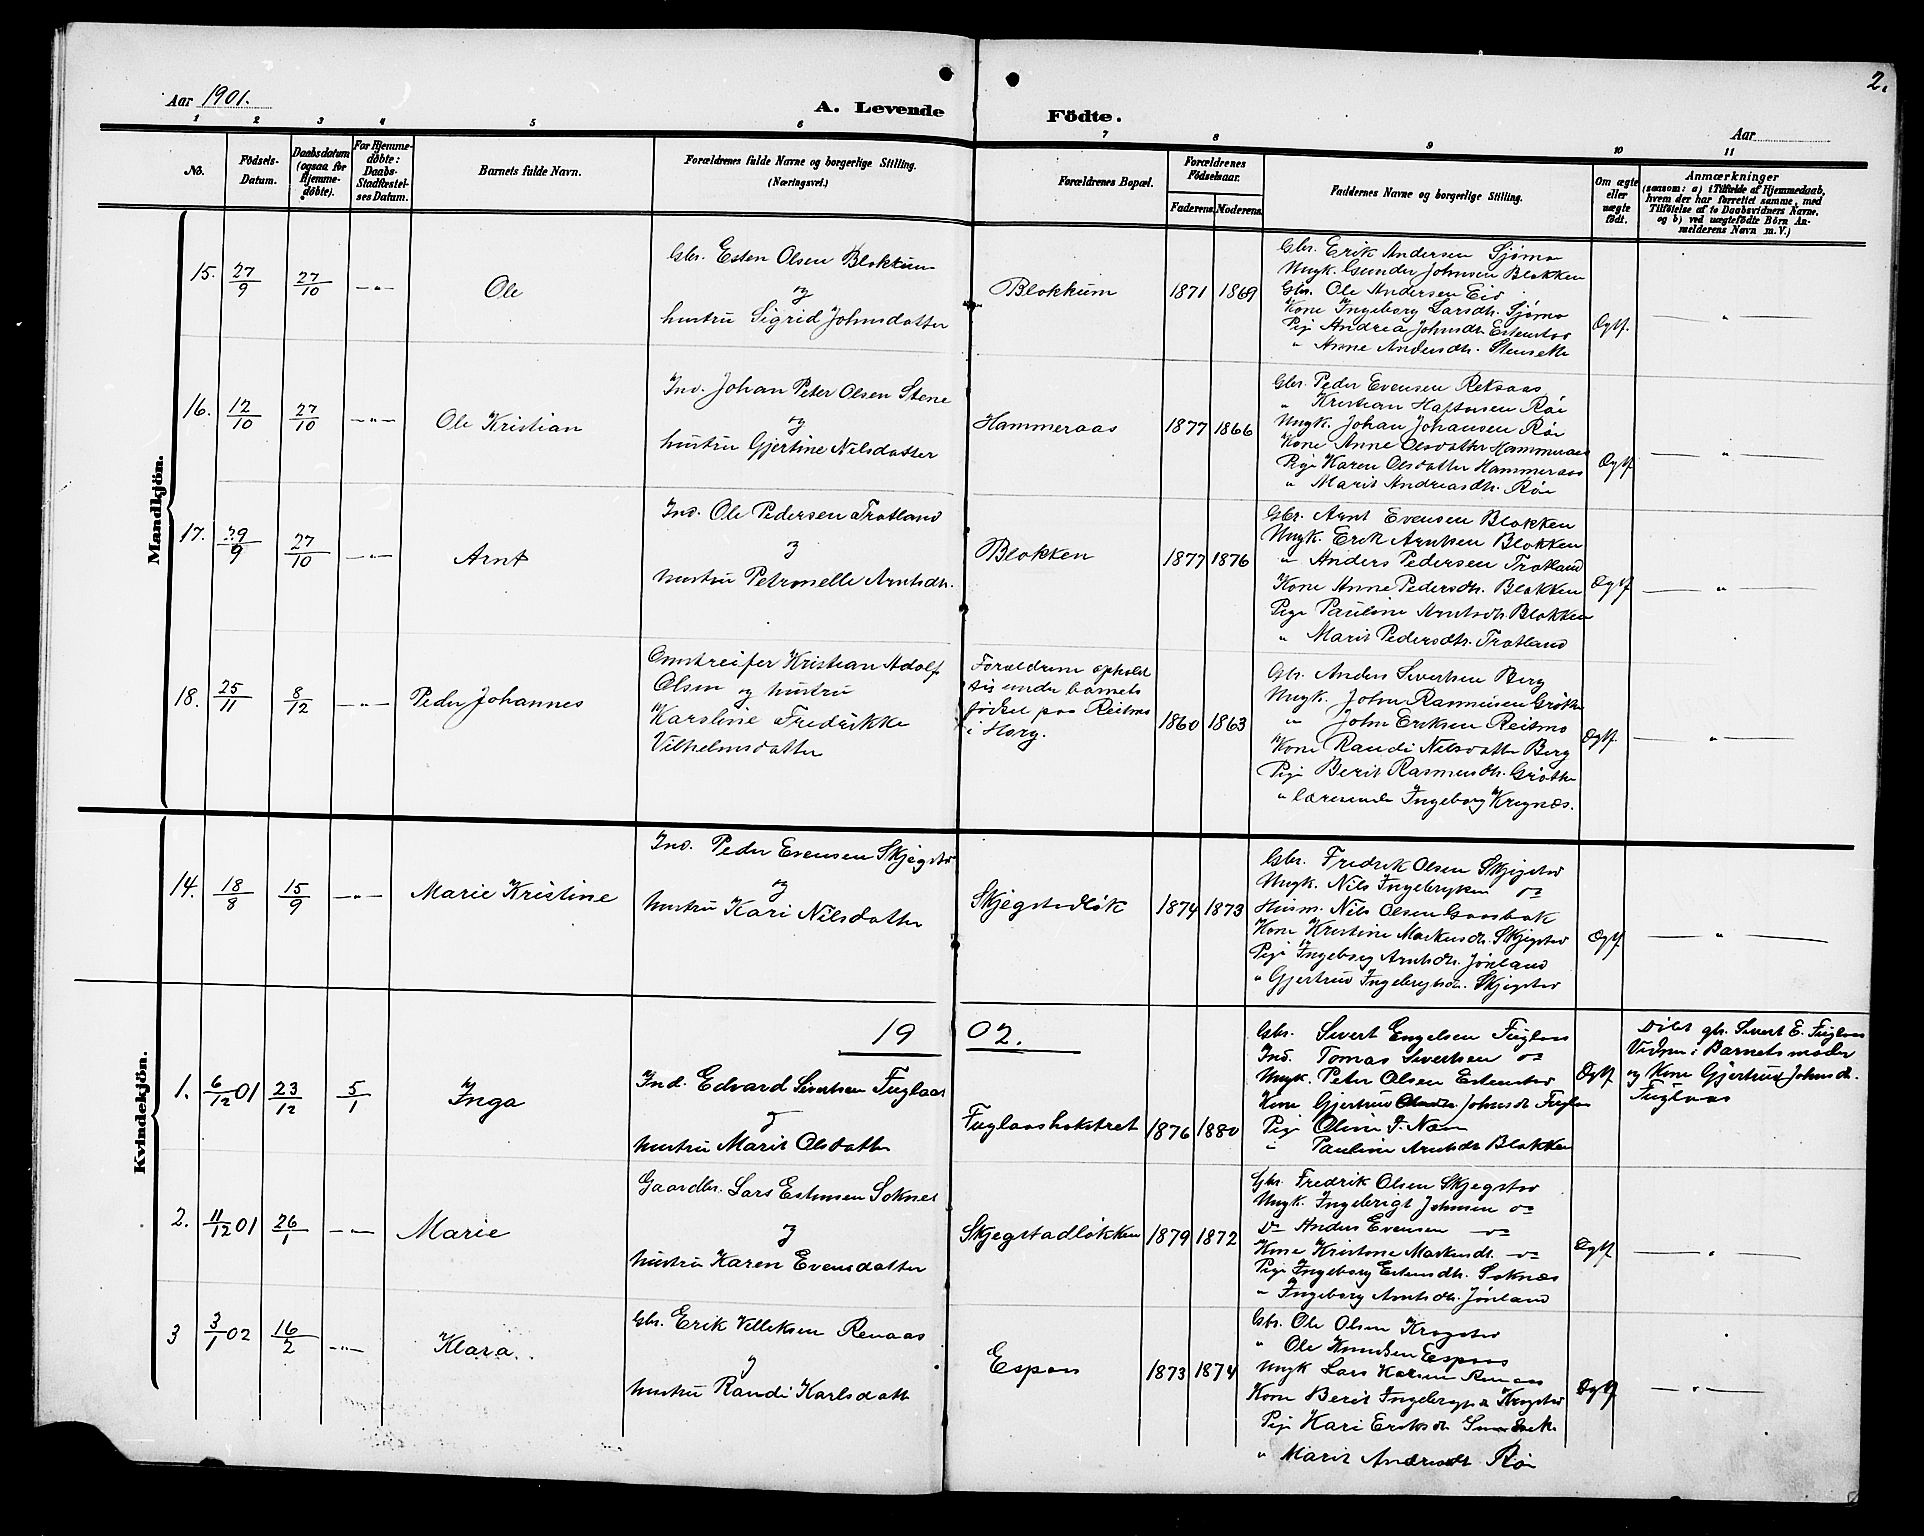 2.
Aar 1901.
A. Levende Födte.
Aar
1 2 3 4 5 6 7 8 9 10 11
No.
Födsels-Datum.
Daabsdatum (ogsaa for Hjemmedöbte).
For Hjemmedöbte: Daabs-Stadfæstelses Datum.
Barnets fulde Navn.
Forældrenes fulde Navne og borgerlige Stilling.
(Næringsvei.)
Forældrenes Bopæl.
Forældrenes Födselsaar.
Faderens. Moderens.
Faddernes Navne og borgerlige Stilling.
Om ægte eller uægte födt.
Anmærkninger
(saasom: a) i Tilfælde af Hjemmedaab, hvem der har forrettet samme, med Tilföielse af to Daabsvidners Navne, og b) ved uægtefödte Börn Anmelderens Navn m. V.)
Mandkjön.
15. 27/9 27/10 —„— Ole
Gbr. Esten Olsen Blokkum
og
hustru Sigrid Johnsdatter
Blokkum 1871 1869
Gbr. Erik Andersen Sjømo
Ungk. Gunder Johnsen Blokken
Gbr. Ole Andersen Eid
Kone Ingeborg Larsdtr. Sjømo
Pige Andrea Johnsdtr. Estenstad
„ Anne Andersdtr.
Ægtf. —„—
16. 12/10 27/10 —„— Ole Kristian
Ind. Johan Peter Olsen Stene
og
hustru Gjertine Nilsdatter
Hammeraas 1877 1866
Gbr. Peder Evensen Reksaas
„ Kristian Haftorsen Røe
Ungk. Johan Johansen Røe
Kone Anne Olsdatter Hammeraas
Pige Karen Olsdatter Hammeraas
„ Marit Andreasdtr. Røe
Ægtf. —„—
17. 29/9 27/10 —„— Arnt
Ind. Ole Pedersen Trotland
og
hustru Petronelle Arntsdtr.
Blokken 1877 1876
Gbr. Arnt Evensen Blokken
Ungk. Erik Arntsen Blokken
„ Anders Pedersen Trotland
Kone Anne Pedersdtr. Blokken
Pige Pauline Arntsdtr. Blokken
„ Marit Pedersdtr. Trotland
Ægtf. —„—
18. 25/11 8/12 —„— Peder Johannes
Omstreifer Kristian Adolf
Olsen og hustru
Karoline Fredrikke
Vilhelmsdatter
Forældrene opholdt
sig under barnets
fødsel paa Reitmo
i Horg.
1860 1863
Gbr. Anders Sivertsen Berg
Ungk. John Rasmussen Grøthe
„ John Eriksen Reitmo
Kone Randi Nilsdatter Berg
Pige Berit Rasmusdtr. Grøthe
„ Lærerinde Ingeborg Krognæs.
Ægtf. —„—
Kvindekjön.
14. 18/8 15/9 —„— Marie Kristine
Ind. Peder Evensen Skjegstad
og
hustru Kari Nilsdatter
Skjegstadløk 1874 1873
Gbr. Fredrik Olsen Skjegstad
Ungk. Nils Ingebrigtsen do
Husm. Nils Olsen Gaasbak
Kone Kristine Markusdtr. Skjegstad
Pige Ingeborg Arntsdtr. Jönland
„ Gjertrud Ingebrigtsdtr. Skjegstad
Ægtf. —„—
1902.
1. 6/12 01 23/12 5/1 Inga
Ind. Edvard Sivertsen Fuglaas
og
hustru Marit Olsdatter
Fuglaashoktret 1876 1880
Gbr. Sivert Engelsen Fuglaas
Ind. Tomas Sivertsen do
Ungk. Peter Olsen Estenstad
Kone Gjertrud Johnsdtr Fuglaas
Pige Oline J.
„ Pauline Arntsdtr Blokken
Ægtf.
Døbt gbr. Sivert E. Fuglaas
Vidner: Barnets moder
og Kone Gjertrud Johnsdr.
Fuglaas
2. 11/12 01 26/1 —„— Marie
Gaardbr. Lars Estensen Soknes
og
hustru Karen Evensdatter
Skjegstadløkken 1879 1872
Gbr. Fredrik Olsen Skjegstad
Ungk. Ingebrigt Johnsen do
Do Anders Evensen do
Kone Kristine Markusdt. do
Pige Ingeborg Estensdtr. Soknæs
„ Ingeborg Arntsdtr. Jönland
Ægtf. —„—
3 3/1 02 16/2 —„— Klara.
Gbr. Erik Renaas
og
hustru Randi Karlsdatter
Espaas 1873 1874
Gbr. Ole Olsen Krogstad
„ Ole Knudsen Espaas
Ungk Lars Renaas
Kone Berit Krogstad
Pige Kari Eriksdtr
„ Marit Andreasdt Røe
Ægtf —„—